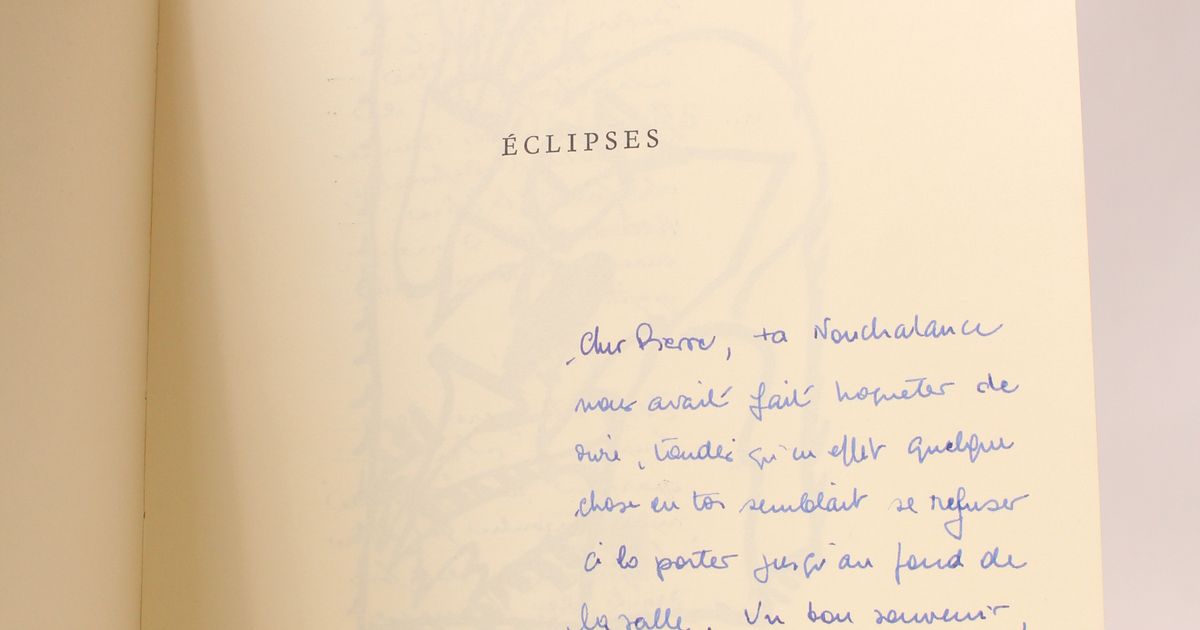 ÉCLIPSES
Cher Pierre, ta Nonchalance
nous avait fait hoqueter de
rire, tandis qu'en effet quelque
chose en toi semblait se refuser
à la porter jusqu'au fond de
la salle. Un bon souvenir,